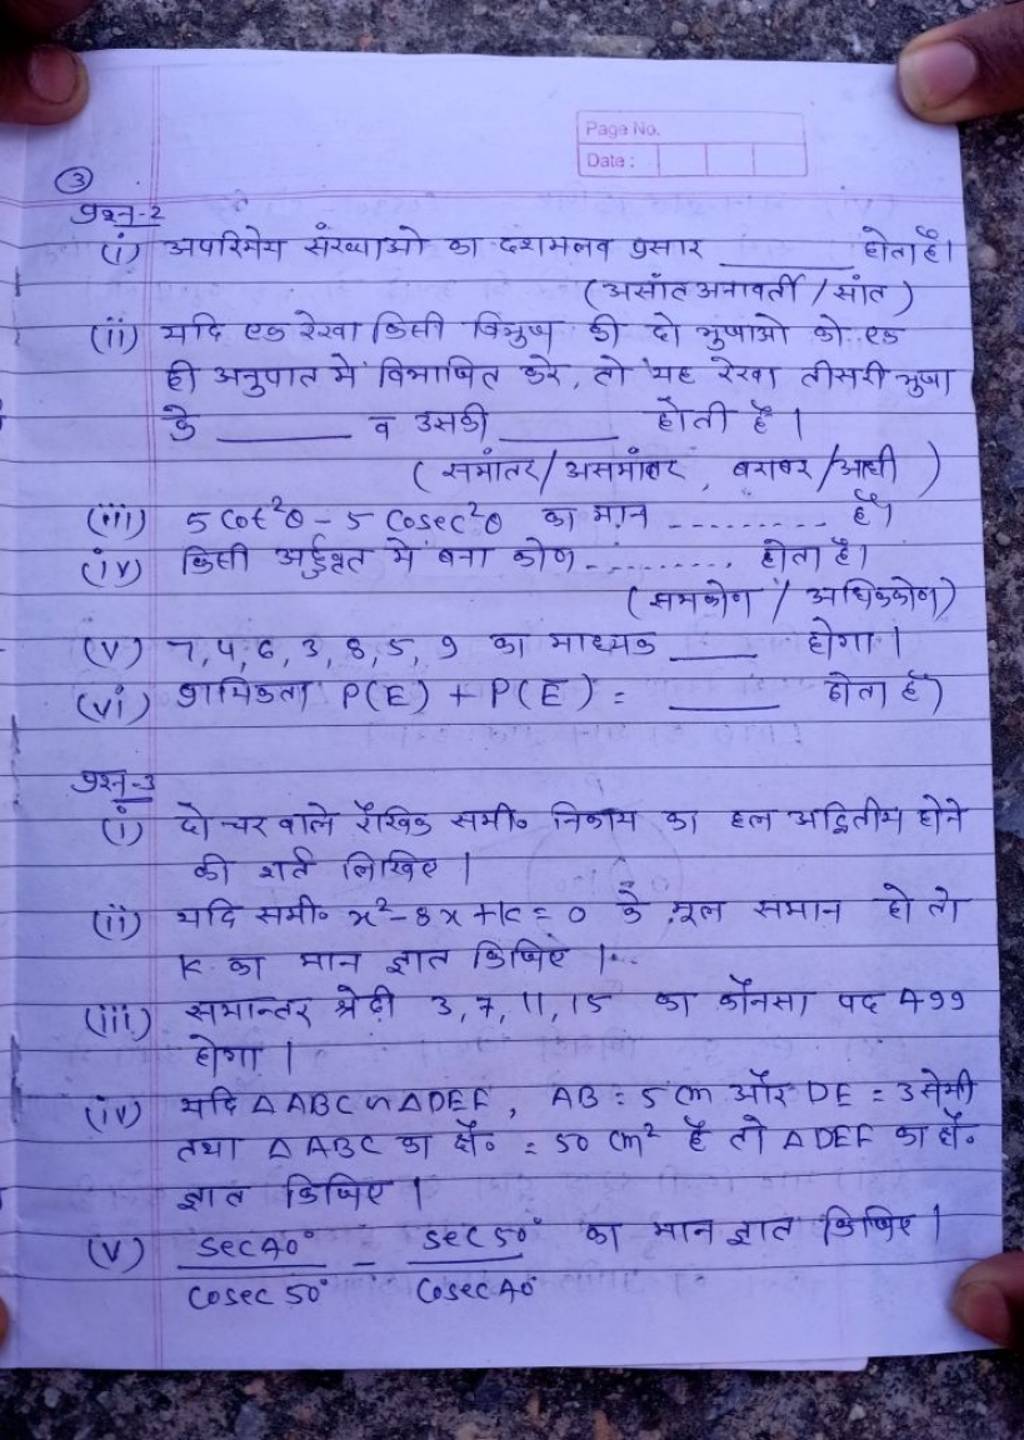 Page No.
Date :
3
प्रश्न-2
(i) अपरिमेय संख्याओ का दशमलव प्रसार ______ होता है।
(असांत अनावर्ती / सांत)
(ii) यदि एक रेखा किसी त्रिभुज की दो भुजाओ को एक
ही अनुपात में विभाजित करे, तो यह रेखा तीसरी भुजा
के ______ व उसकी ______ होती है।
(समांतर/असमांतर, बराबर/आधी)
(iii) 5 Cot²θ - 5 Cosec²θ का मान --------- है।
(iv) किसी अर्द्धवृत में बना कोण --------- होता है।
(समकोण / अधिककोण)
(v) 7, 4, 6, 3, 8, 5, 9 का माध्यक ____ होगा।
(vi) प्रायिकता P(E) + P(E̅) = _____ होता है।
प्रश्न-3
(i) दो चर वाले रैखिक समी० निकाय का हल अद्वितीय होने
की शर्त लिखिए।
(ii) यदि समी० x² - 8x + k = 0 के मूल समान हो तो
K का मान ज्ञात किजिए।
(iii) समान्तर श्रेढ़ी 3, 7, 11, 15 का कौनसा पद 499
होगा।
(iv) यदि ΔABC ∽ ΔDEF, AB = 5 cm और DE = 3 सेमी
तथा ΔABC का क्षै० = 50 cm² है तो ΔDEF का क्षै०
ज्ञात किजिए।
(v) sec40° / cosec50° - sec50° / cosec40° का मान ज्ञात किजिए।